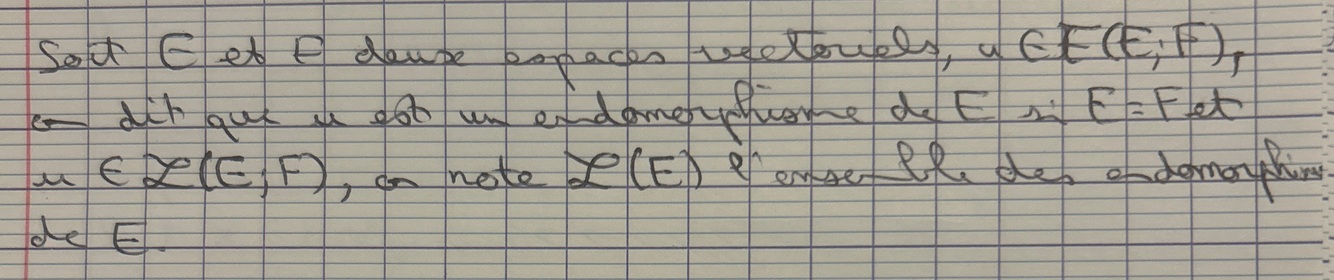 Soit E et F deux espaces vectoriels, u ∈ F(E, F),
on dit que u est un endomorphisme de E si E = F et
u ∈ ℒ(E, F), on note ℒ(E) l'ensemble des endomorphismes
de E.